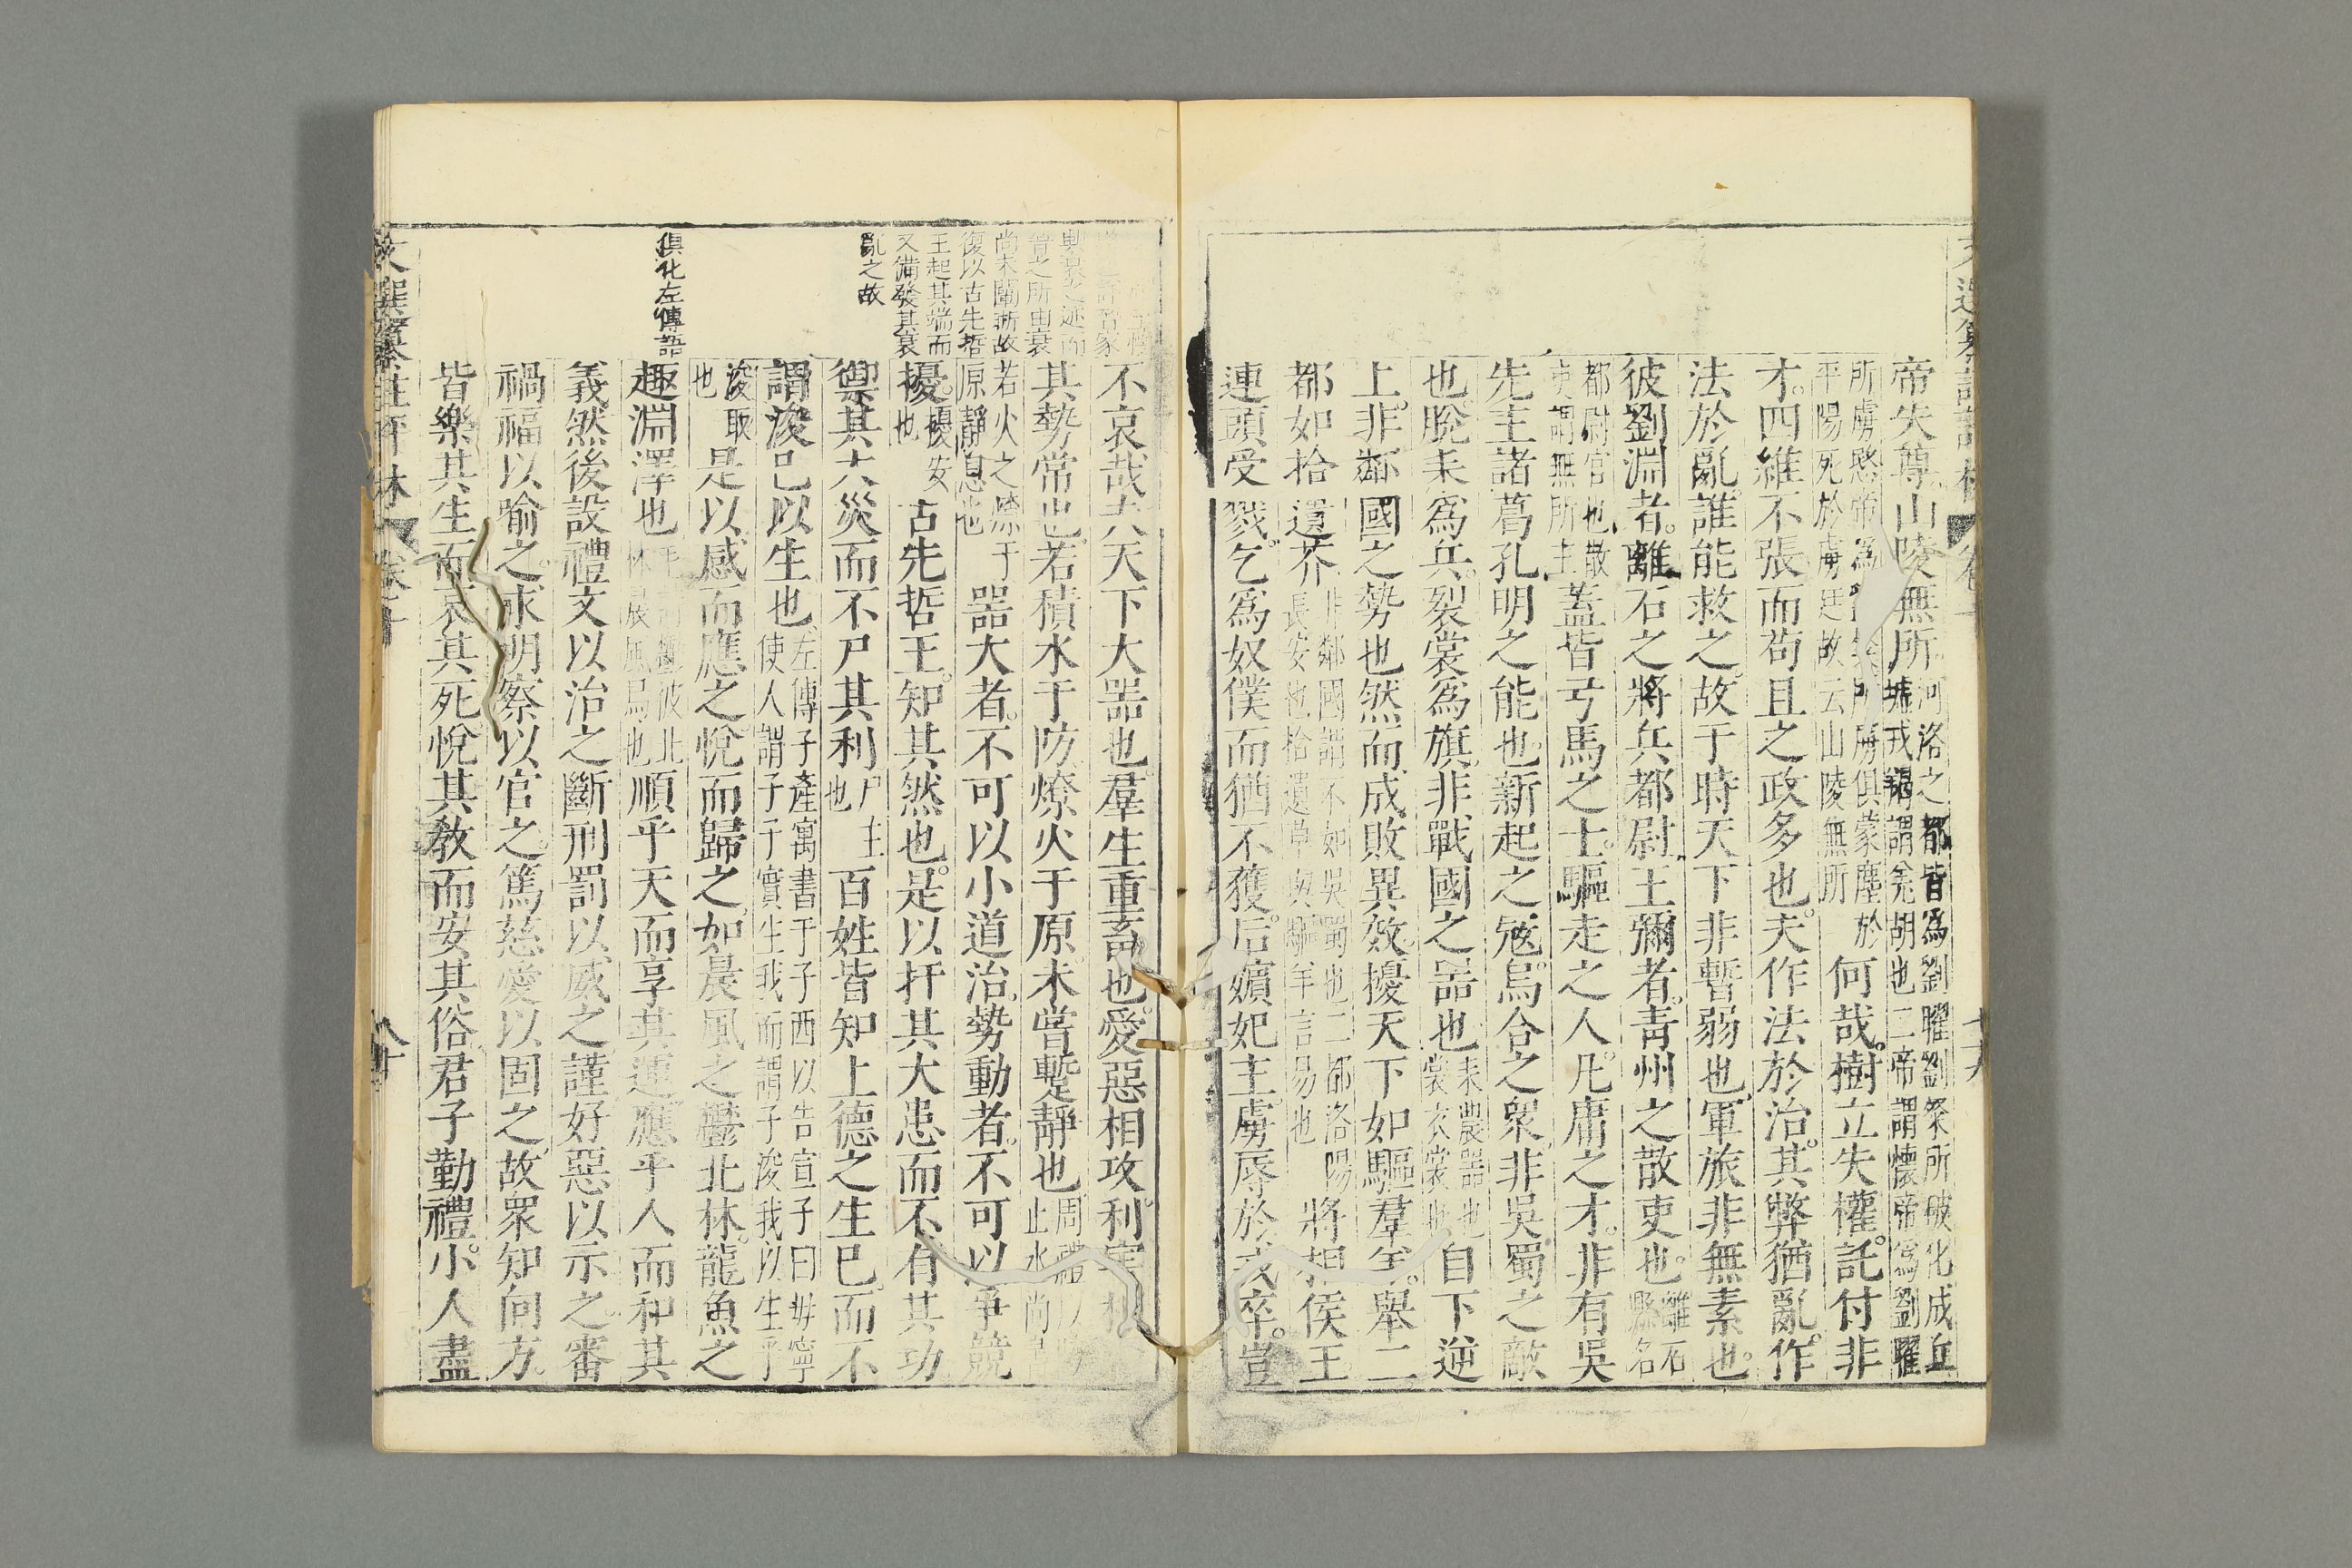 帝失尊山陵無所河洛之都皆爲劉曜劉粲所破化成丘墟戎羯謂羌胡也二帝謂懷帝爲劉曜
所虜愍帝爲所虜俱蒙塵於平陽死於虜廷故云山陵無所何哉樹立失權託付非
才四維不張而苟且之政多也夫作法於治其弊猶亂作
法於亂誰能救之故于時天下非暫弱也軍旅非無素也
彼劉淵者離石之將兵都尉王彌者青州之散吏也離石縣名
都尉官也散吏謂無所主蓋皆弓馬之士驅走之人凡庸之才非有吳
先主諸葛孔明之能也新起之寇烏合之衆非吳蜀之敵
也脫耒爲兵裂裳爲旗非戰國之器也耒農器也裳衣裳也自下逆
上非鄰國之勢也然而成敗異效擾天下如驅羣羊舉二
都如拾遺芥非鄰國謂不如吳蜀也二都洛陽長安也拾遺草與驅羊言易也將相侯王
連頭受戮乞爲奴僕而猶不獲后嬪妃主虜辱於戎卒豈
不哀哉夫天下大器也羣生重畜也愛惡相攻利害相
其勢常也若積水于防燎火于原未嘗暫靜也周禮以防止水尚書
若火之燎于原靜息也器大者不可以小道治勢動者不可以爭競
擾擾安也古先哲王知其然也是以扞其大患而不有其功
禦其大災而不尸其利尸主也百姓皆知上德之生已而不
謂浚已以生也左傳子產寓書于子西以告宣子曰毋寧使人謂子子實生我而謂子浚我以生乎
浚取也是以感而應之悅而歸之如晨風之鬱北林龍魚之
趣淵澤也彼北林晨風鳥也順乎天而享其運應乎人而和其
義然後設禮文以治之斷刑罰以威之謹好惡以示之審
禍福以喻之求明察以官之篤慈愛以固之故衆知向方
皆樂其生而哀其死悅其敎而安其俗君子勤禮小人盡
興衰之迹而
嘗之所由衰
尚未闡晰故
復以古先哲
王起其端而
又備發其衰
亂之故
俱化左傳語